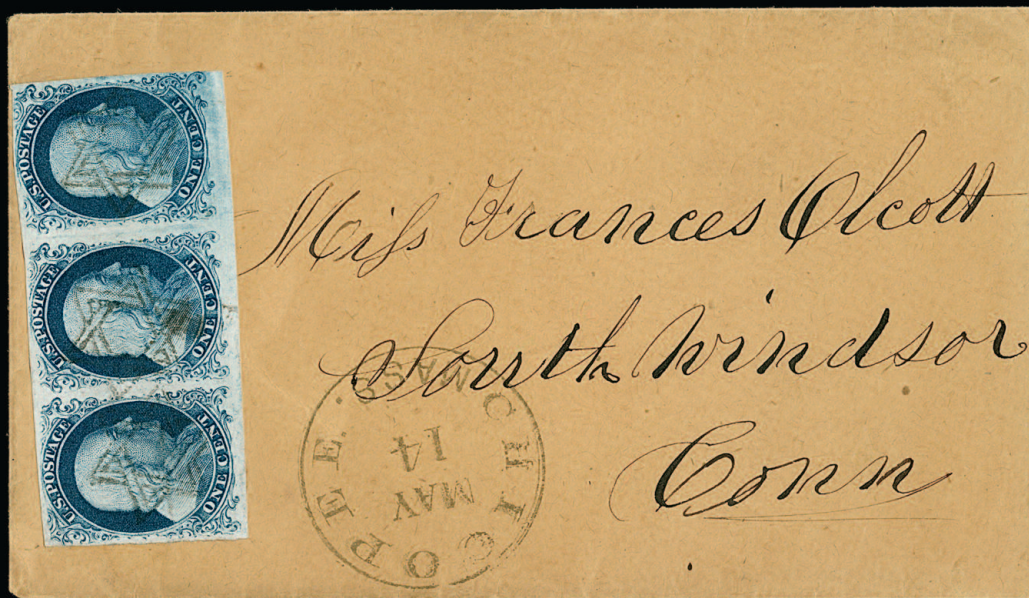 U.S. POSTAGE
ONE CENT
U.S. POSTAGE
ONE CENT
U.S. POSTAGE
ONE CENT
Miſs Frances Olcott
South Windsor
Conn
CHICOPEE
MAS
MAY
14